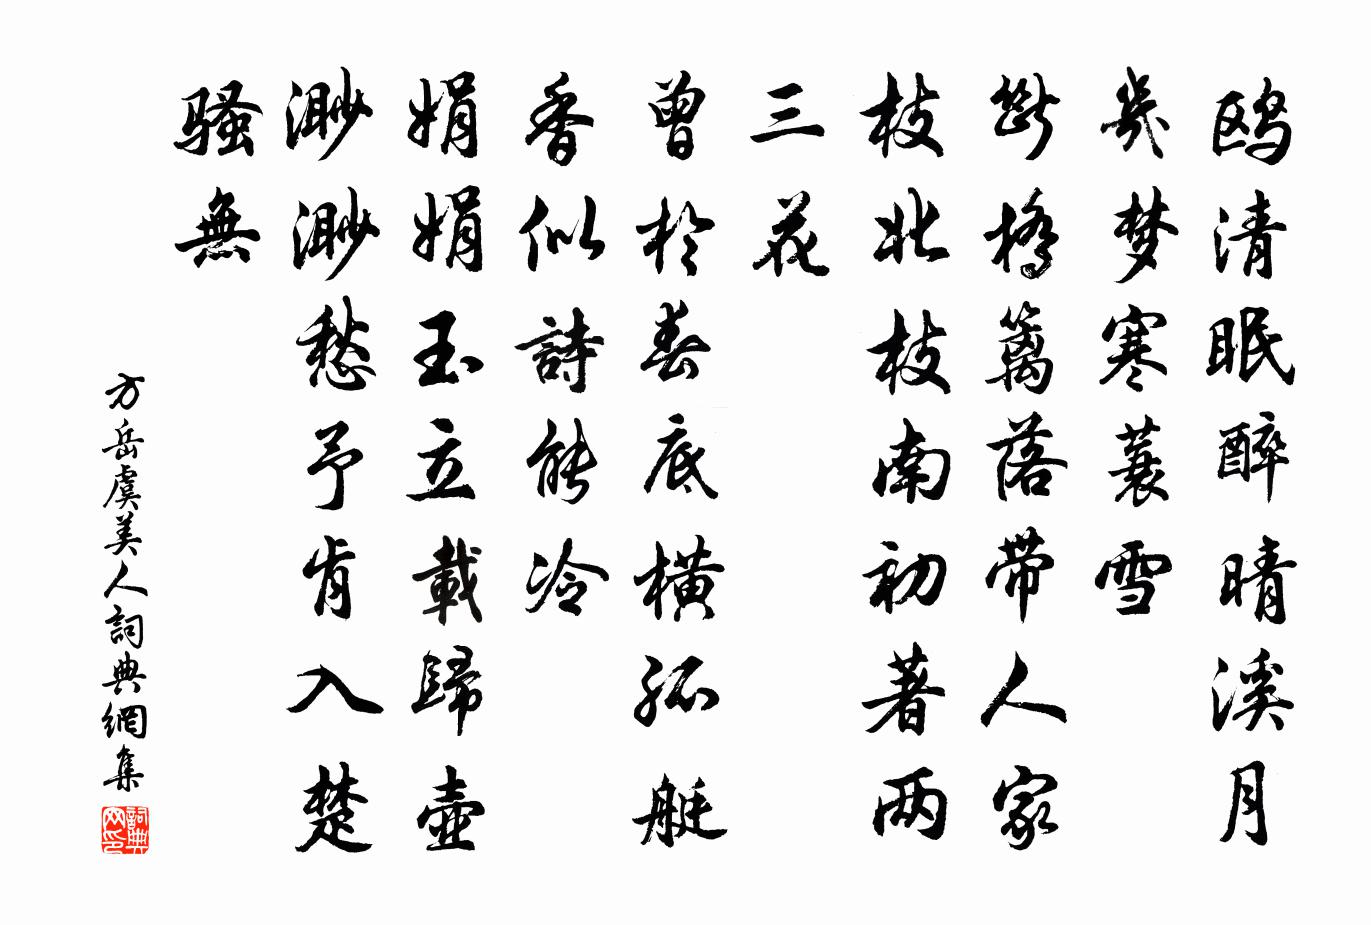 鸥清眠醉晴溪月
几梦寒蓑雪
断桥篱落带人家
枝北枝南初著两
三花
曾於春底横孤艇
香似詩能冷
娟娟玉立載歸壺
渺渺愁予肯入楚
骚無
方岳虞美人詞典網集
詞典
网印